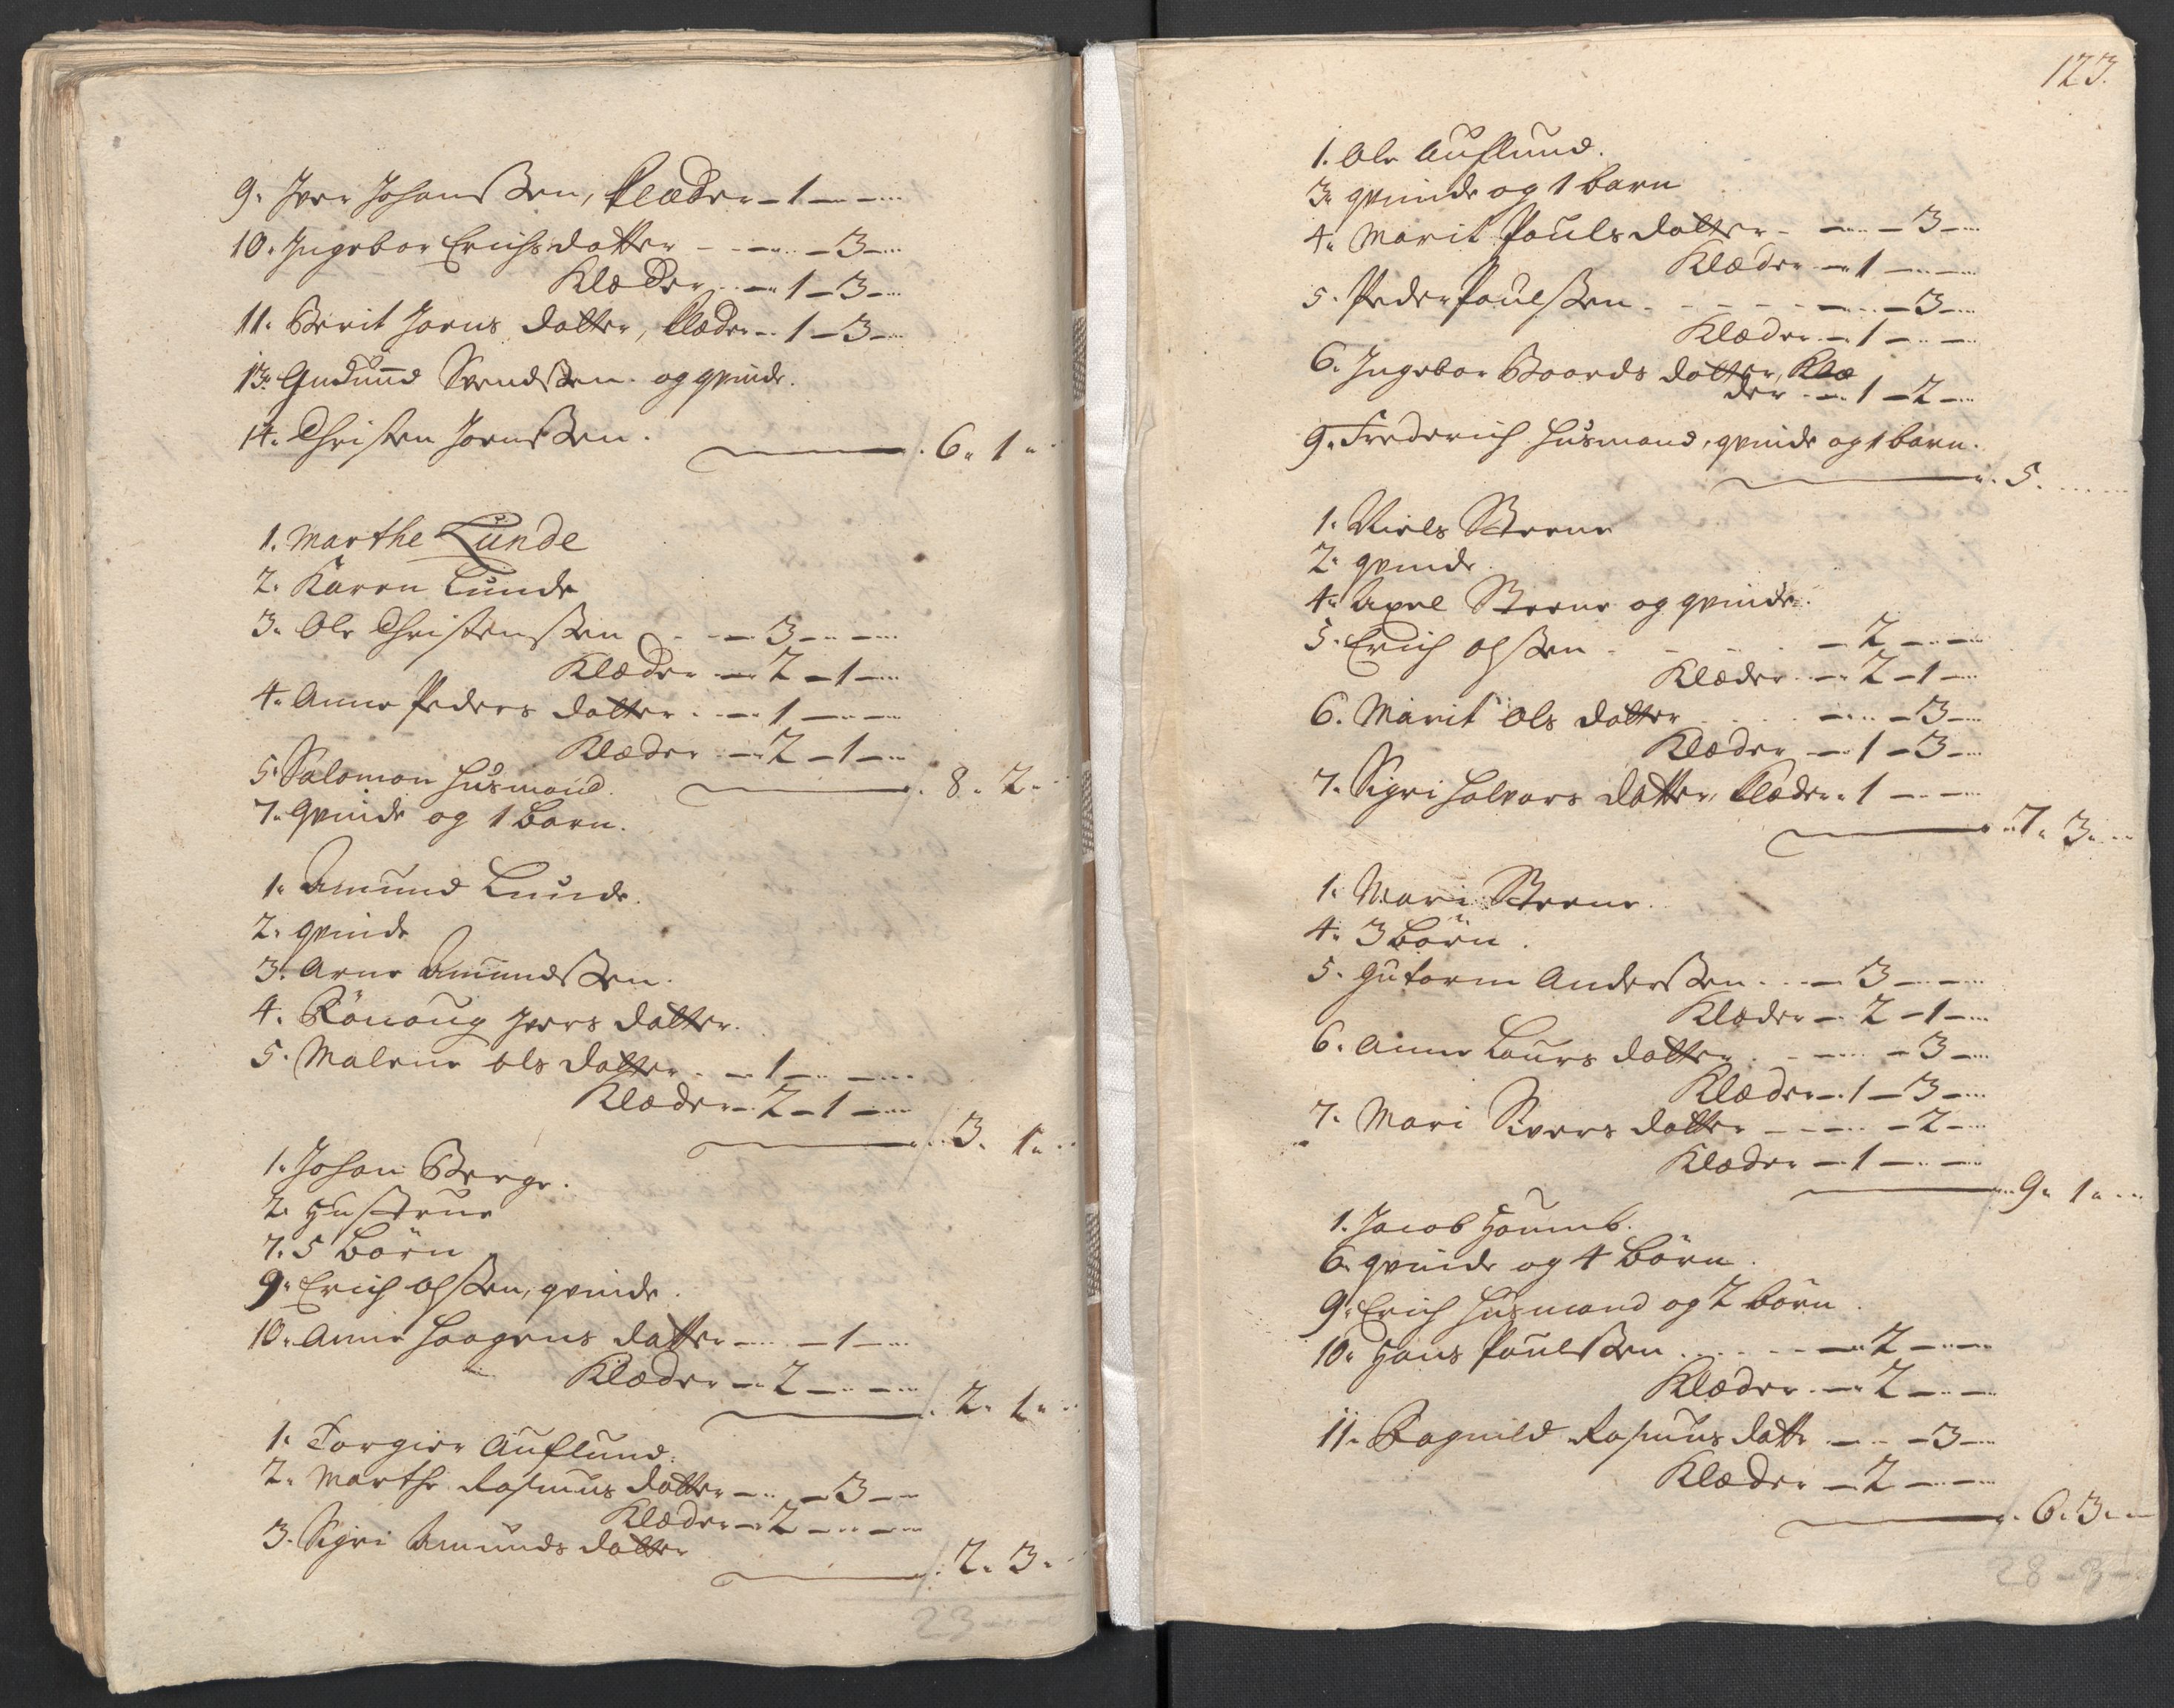 9. Iver Johanssen, Klæder – 1 – –
10. Ingebor Erichs datter – – – 3 –
Klæder – 1 – 3 –
11. Berit Joens datter, Klæder – 1 – 3 –
13. Gudmund Svendssen og qvinde.
14. Christen Joenssen.
6. 1.
1. Marthe Lunde
2. Karen Lunde
3. Ole Christenssen – – 3 – –
Klæder – 2 – 1 –
4. Anne Peders datter – 1 – –
Klæder – 2 – 1 –
5. Salomon Husmand.
8. 2.
7. Qvinde og 1 barn.
1. Amund Lunde.
2. qvinde
3. Arne Amundssen.
4. Rönoug Ivers datter.
5. Malene Ols datter – 1 – –
Klæder – 2 – 1 –
3. 1.
1. Johan Berge.
2. Hustrue
7. 5 börn
9. Erich Olssen, qvinde.
10. Anne Haagens datter – – 1 –
Klæder – 2 – –
2. 1.
1. Torgier Auflund.
2. Marthe Rasmus datter – – 3 –
Klæder – 2 – –
3. Sigri Amunds datter
2. 3.
23 – –
123.
1. Ole Auflund.
3. qvinde og 1 barn
4. Marit Pouls datter – – – 3 –
Klæder – 1 – –
5. Peder Poulssen – – – – 3 –
Klæder – 1 – –
6. Ingebor Baards datter, Klæ
der – 1 – 2 –
9. Frederich Husmand, qvinde og 1 barn.
5.
1. Niels Steene
2. qvinde.
4. Axel Steene og qvinde.
5. Erich Olssen – – 2 – –
Klæder – 2 – 1 –
6. Marit Ols datter – – 3 –
Klæder – 1 – 3 –
7. Sigri Halvors datter, Klæder. 1 – –
7. 3.
1. Mari Steene.
4. 3 börn.
5. Gutorm Anderssen – – 3 – –
Klæder – 2 – 1 –
6. Anne Laurs datter – – – 3 –
Klæder – 1 – 3 –
7. Mari Sivers datter – – – 2 –
Klæder – 1 – –
9. 1.
1. Jacob Houmb.
6. qvinde og 4 börn.
9. Erich Husmand og 2 börn.
10. Hans Poulssen – – 2 – –
Klæder – 2 – –
11. Ragnild Rasmus datt – – 3 –
Klæder – 2 – –
6. 3.
28 – 3 –